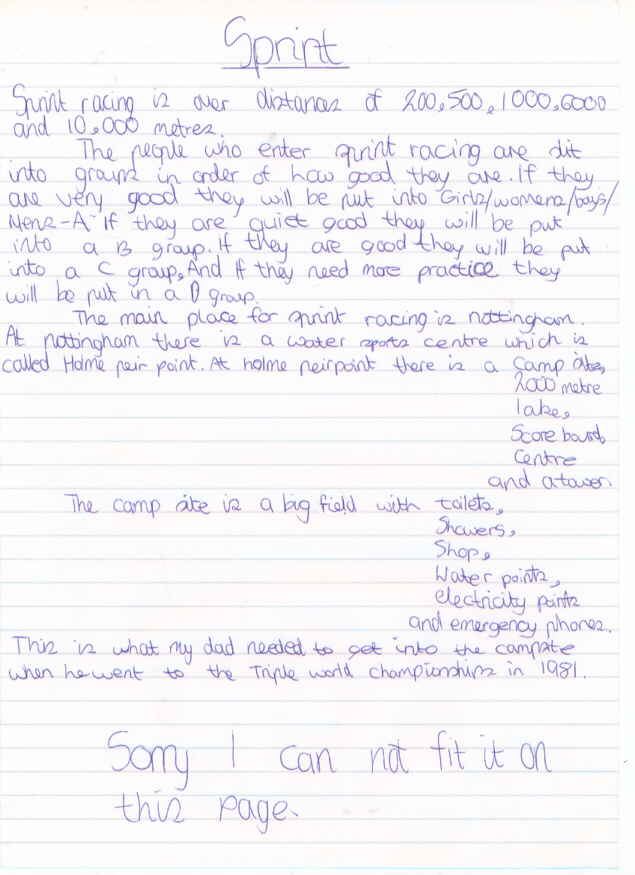 Sprint
Sprint racing is over distances of 200, 500, 1000, 6000
and 10,000 metres.
The people who enter sprint racing are dit
into groups in order of how good they are. If they
are very good they will be put into Girls/womens/boys/
Mens-A. If they are quiet good they will be put
into a B group. If they are good they will be put
into a C group, And if they need more practice they
will be put in a D group.
The main place for sprint racing is nottingham.
At nottingham there is a water sports centre which is
called Holme peir point. At holme peirpoint there is a Camp site,
2000 metre
lake,
Score board,
Centre
and a tower.
The camp site is a big field with toilets,
Showers,
Shop,
Water points,
electricity points
and emergency phones.
This is what my dad needed to get into the campsite
when he went to the Triple world championships in 1981.
Sorry I can not fit it on
this page.